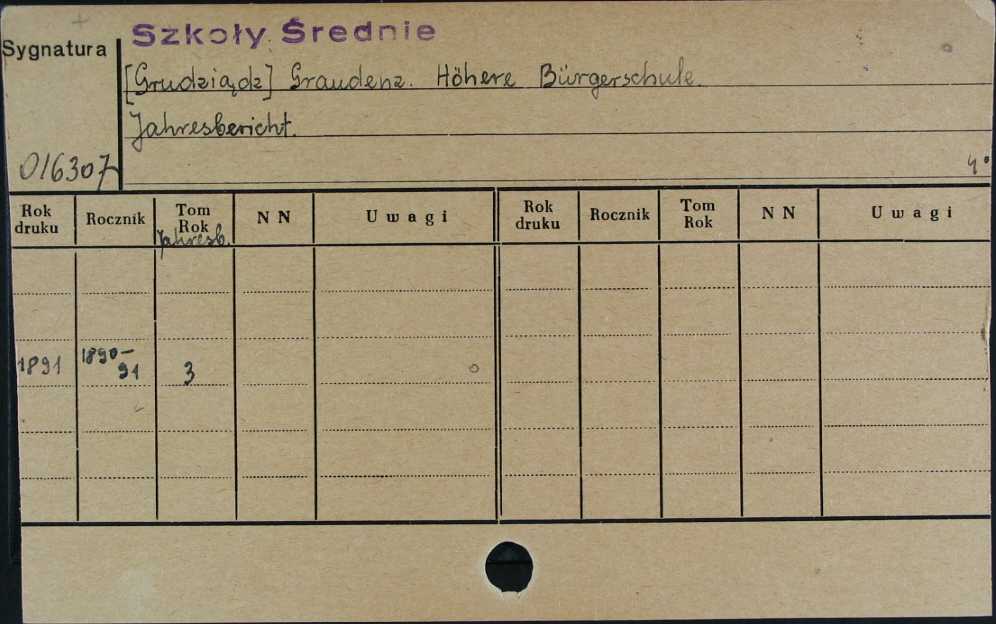 Szkoły Średnie
Sygnatura
[Grudziądz] Graudenz. Höhere Bürgerschule.
Jahresbericht.
016307
4°
Rok druku Rocznik Tom Rok Jahresb. NN Uwagi Rok druku Rocznik Tom Rok NN Uwagi
1891 1890-91 3